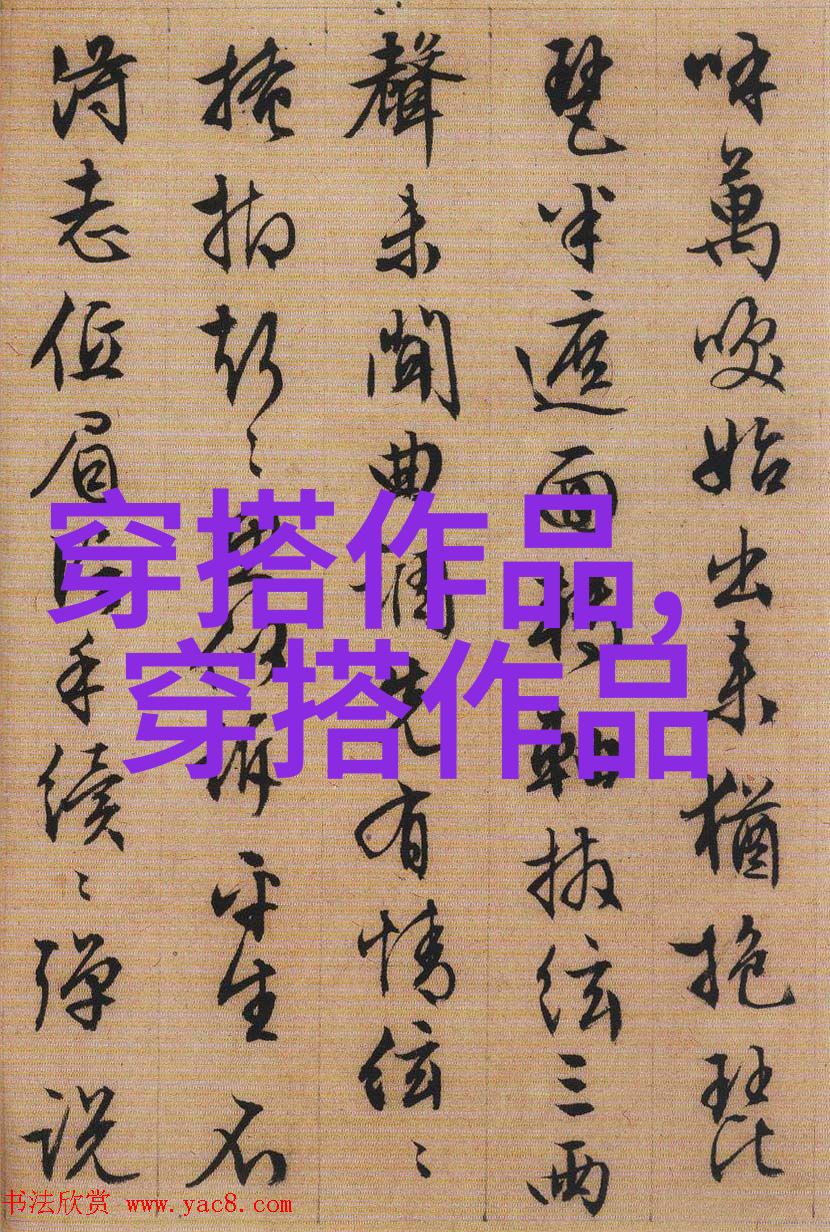 呼萬喚始出来猶抱琵
琶半遮面轉軸撥絃三兩
聲未聞曲調先有情絃〻
掩抑声〻思似訴平生不
得志低眉信手續〻彈説
穿搭作品,
穿搭作品
书法欣赏 www.yac8.com